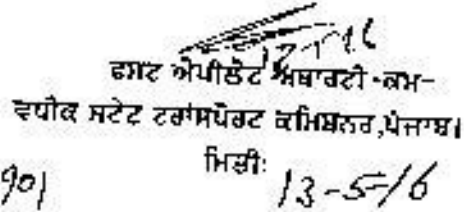 ਫਸਟ ਐਪੀਲੇਟ ਅਥਾਰਟੀ-ਕਮ-
ਵਧੀਕ ਸਟੇਟ ਟਰਾਂਸਪੋਰਟ ਕਮਿਸ਼ਨਰ,ਪੰਜਾਬ।
ਮਿਤੀ: 13-5-16
901